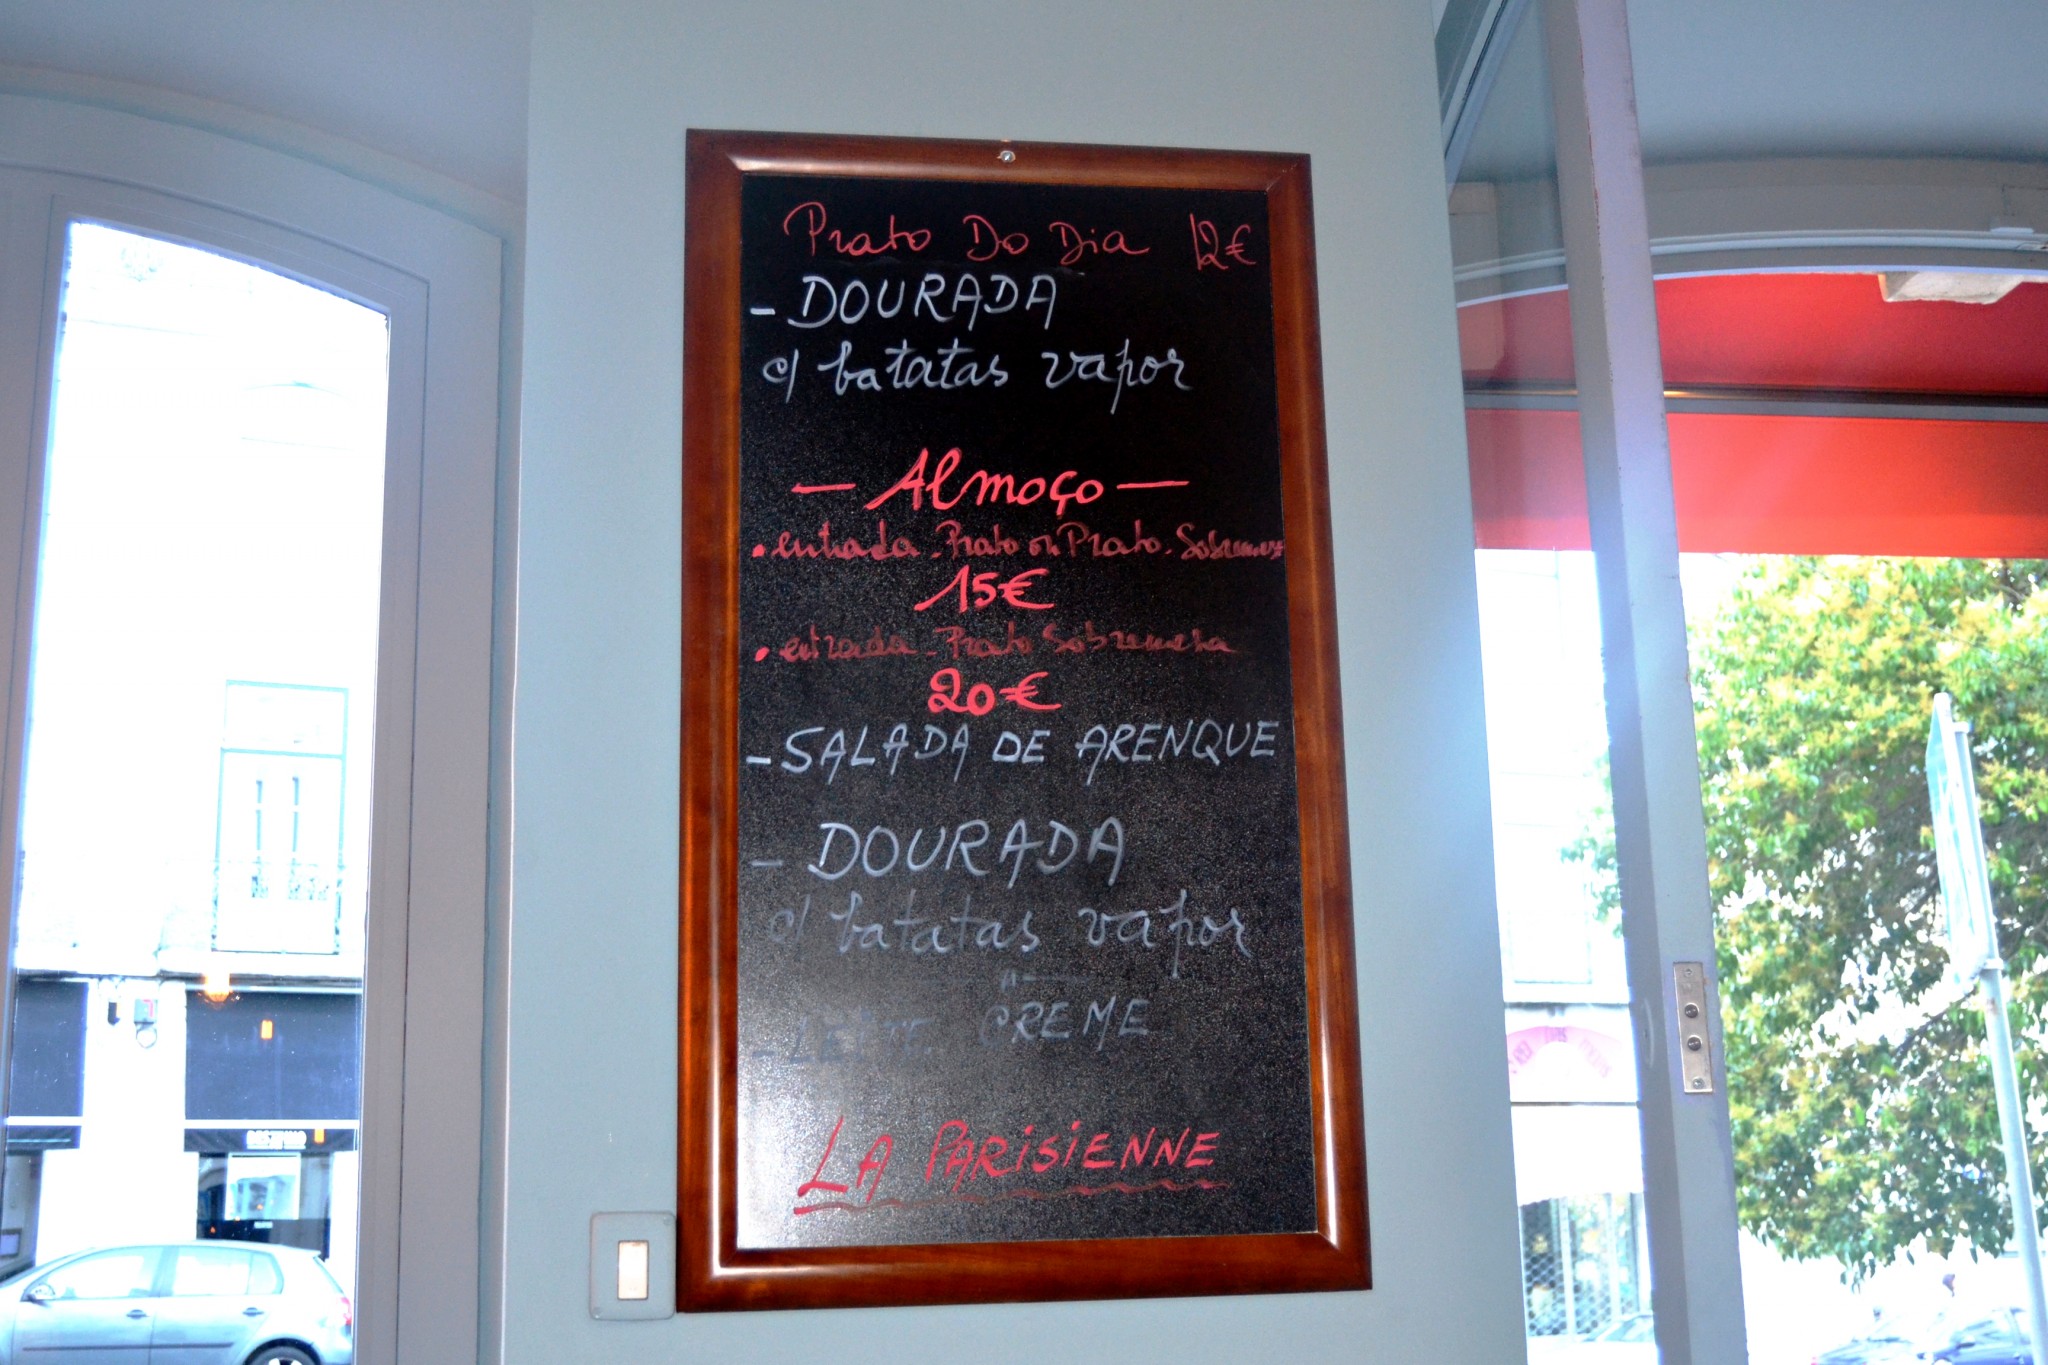 Prato Do Dia 12€
- DOURADA
c/ batatas vapor
— Almoço —
• entrada - Prato ou Prato - Sobremesa
15€
• entrada - Prato Sobremesa
20€
- SALADA DE ARENQUE
- DOURADA
c/ batatas vapor
- LEITE CREME
LA PARISIENNE